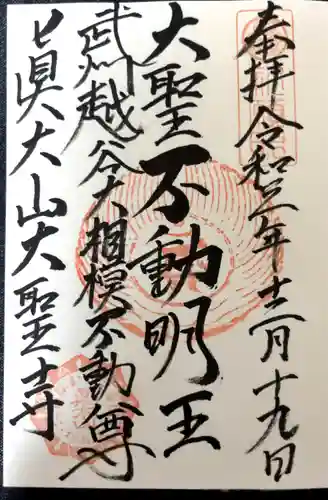 奉拝 令和二年十二月十九日
大聖不動明王
武州越谷大相模不動尊
真大山大聖寺